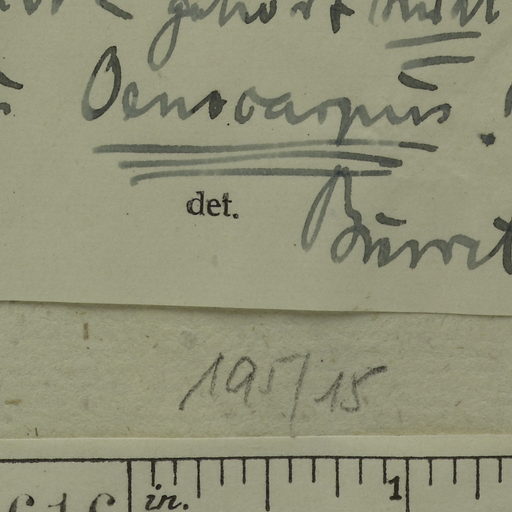 gehört nicht
Oenocarpus.
det.
Burret
195/15
in. 1